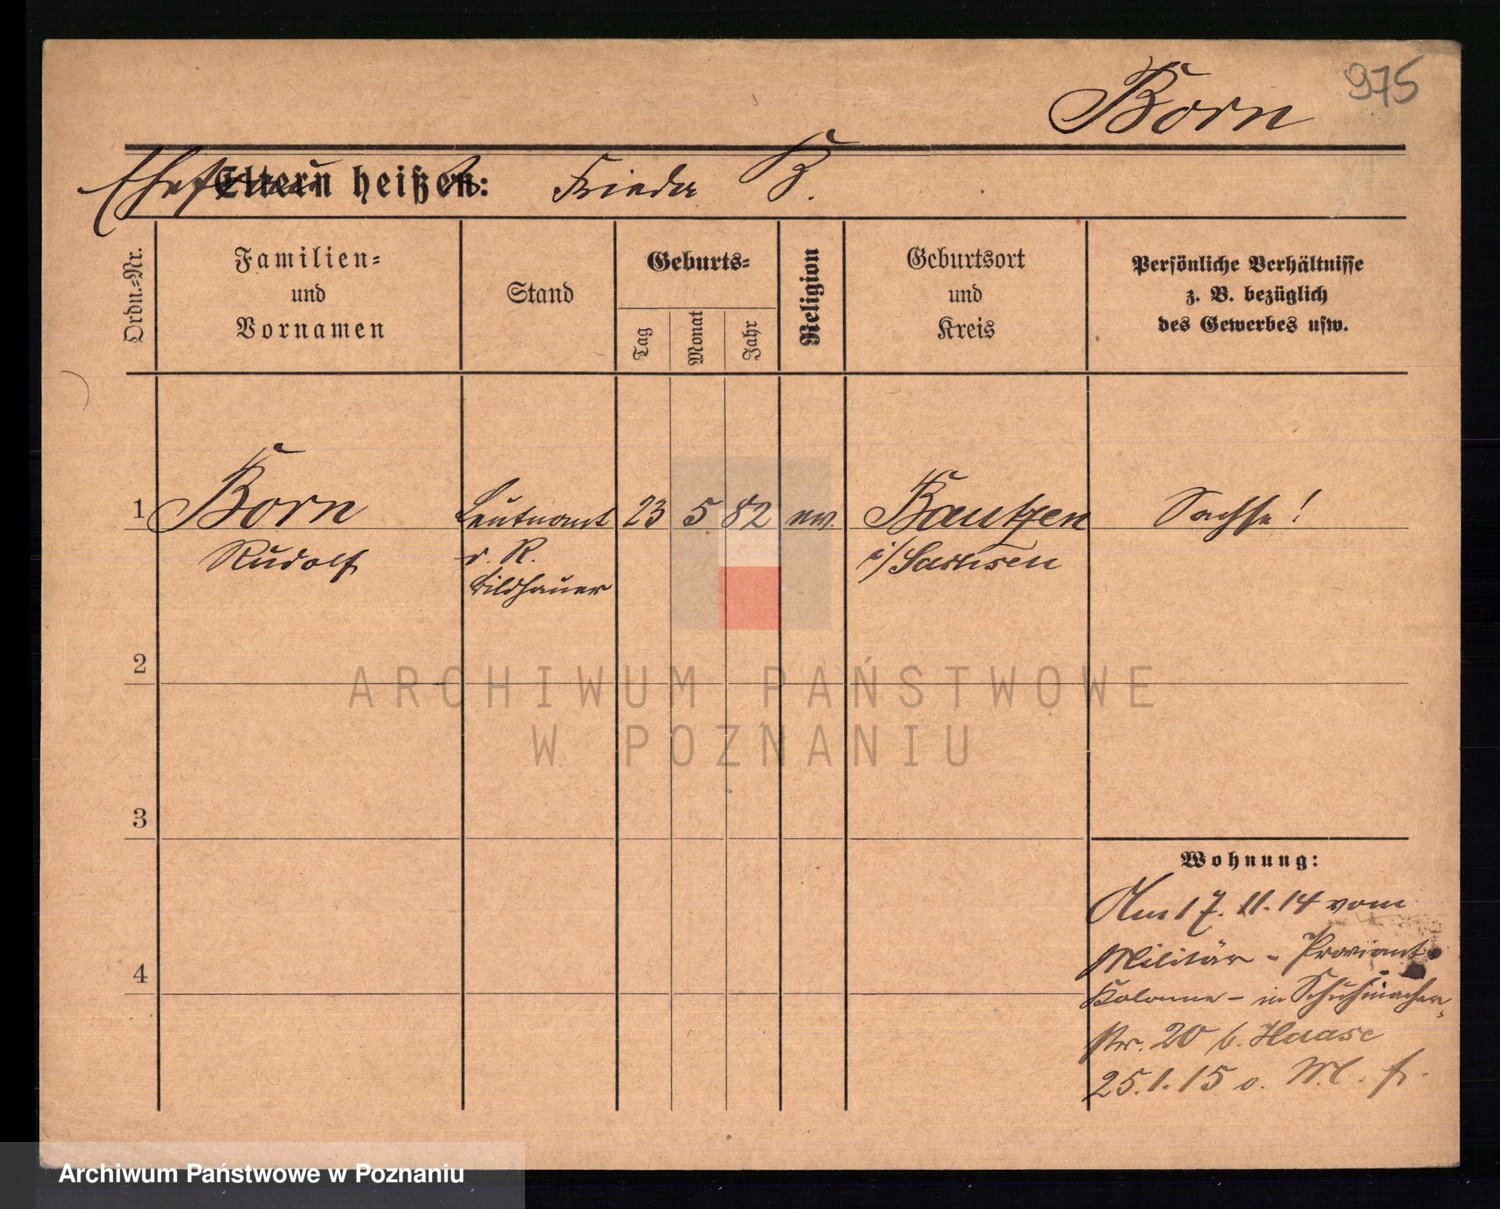 Born
975
Ehefrau
Eltern heißen: Frieda B.
Ordn.-Nr.
Familien-
und
Vornamen
Stand
Geburts-
Tag
Monat
Jahr
Religion
Geburtsort
und
Kreis
Persönliche Verhältnisse
z. B. bezüglich
des Gewerbes usw.
1 Born Leutnant 23 5 82 ev. Bautzen Sachse!
Rudolf d. R. i/Sachsen
Bildhauer
2
ARCHIWUM PAŃSTWOWE
W POZNANIU
3
Wohnung:
Am 17. 11. 14 vom
Militär - Proviant-
4
Kolonne - in Schuhmacher-
str. 20 b. Haase
25.1.15 v. M. fr.
Archiwum Państwowe w Poznaniu